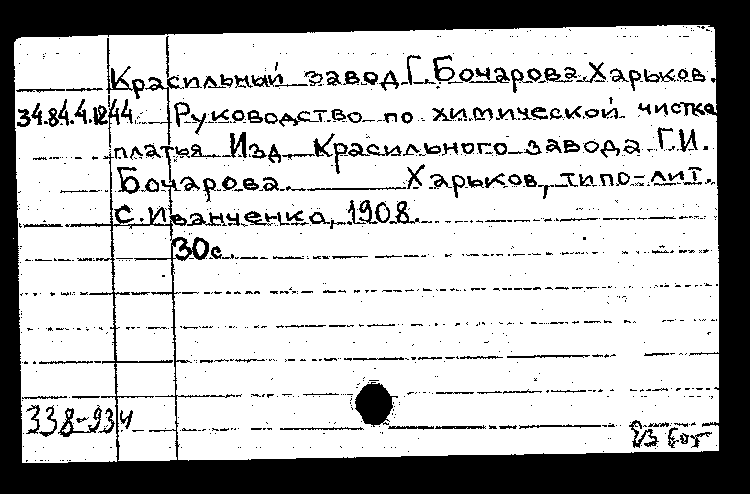 Красильный завод Г. Бочарова. Харьков.
34.84.4.1244 Руководство по химической чистке
платья Изд. Красильного завода Г.И.
Бочарова. Харьков, типо-лит.
С. Иванченко, 1908.
30с.
338-934